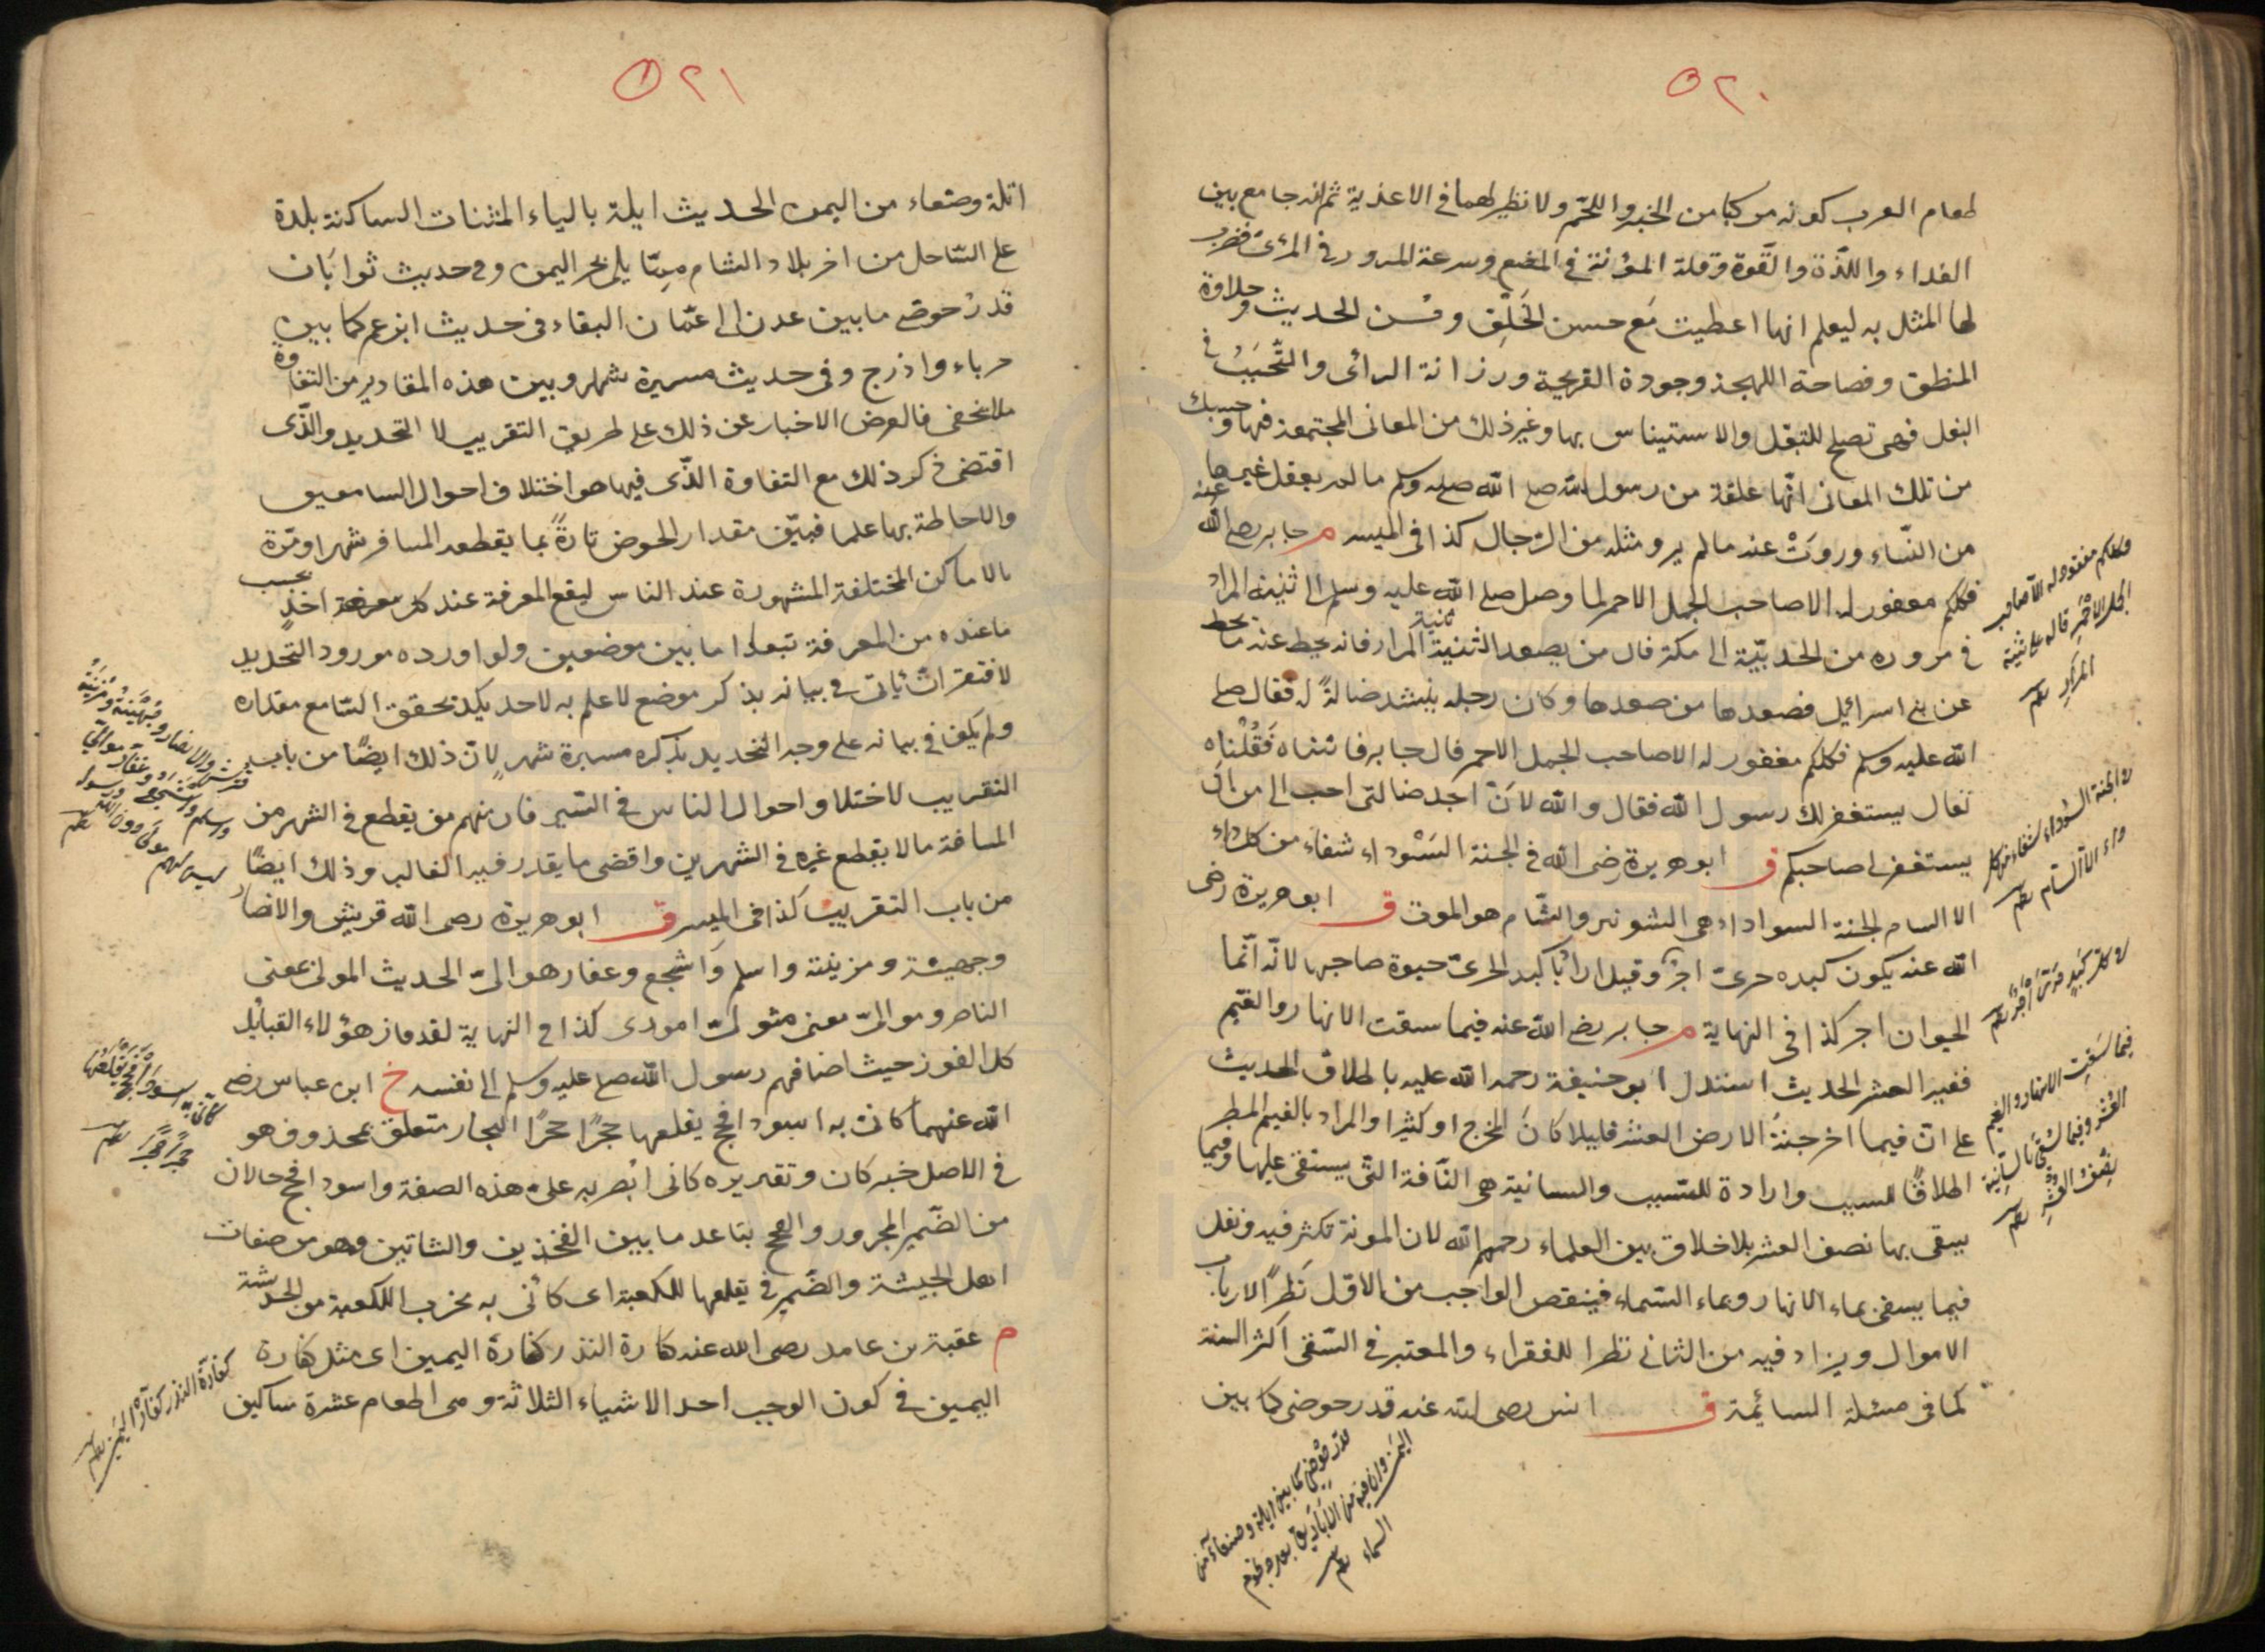 ٥٢٠
طعام العرب كونه مركبا من الخبز واللحم ولا نظير لهما فى الاغذية ثم انه جامع بين
الغداء واللذة والقوة وقلة المؤنة فى المضغ وسرعة المرور فى المرئ فضرب
لها المثل به ليعلم انها اعطيت مع حسن الخلق وحسن الحديث وحلاوة
المنطق وفصاحة اللهجة وجودة القريحة ورزانة الرائى والتحبب فى
البعل فهى تصلح للتبعل والاستيناس بها وغير ذلك من المعانى المجتمعة فيها وحسبك
من تلك المعانى انها علقة من رسول الله صلى الله عليه وسلم ما لم يعقل غيرها
من النساء وروت عنه ما لم يرو مثله من الرجال كذا فى الميسر م جابر رضى الله عنه
فكلكم مغفور له الا صاحب الجمل الاحمر لما وصل صلى الله عليه وسلم الى ثنية المرار
فى مروره من الحديبية الى مكة قال من يصعد الثنية ثنية المرار فانه يحط عنه ما حط
عن بنى اسرائيل فصعدها من صعدها وكان رجل ينشد ضالة له فقال صلى
الله عليه وسلم فكلكم مغفور له الا صاحب الجمل الاحمر قال جابر فاتيناه فقلناه
تعال يستغفر لك رسول الله فقال والله لان اجد ضالتى احب الى من ان
يستغفر لى صاحبكم ق ابو هريرة رضى الله فى الحبة السوداء شفاء من كل داء
الا السام الحبة السواداء هى الشونيز والسام هو الموت ق ابو هريرة رضى
الله عنه يكون كبده حرى اجر وقيل اراد بالكبد الحرى حيوة صاحبها لانه انما
الحيوان اجر كذا فى النهاية م جابر رضى الله عنه فيما سقت الانهار والغيم
ففيه العشر الحديث استدل ابو حنيفة رحمه الله عليه باطلاق الحديث
على ان فيما اخرجته الارض العشر قليلا كان الخرج او كثيرا والمراد بالغيم المطر
اطلاقا للسبب وارادة للمسبب والسانية هى الناقة التى يستقى عليها وفيما
يسقى بها نصف العشر بلا خلاق بين العلماء رحمهم الله لان المونة تكثر فيه وتقل
فيما يسقى بماء الانهار وبماء السماء فينقص الواجب من الاول نظرا لارباب
الاموال ويزاد فيه من الثانى نظرا للفقراء والمعتبر فى السقى اكثر السنة
كما فى مسئلة السائمة ق انس رضى الله عنه قدر حوضى كما بين
وكلكم مغفور له الا صاحب
الجمل الاحمر قاله على ثنية
المرار
فى الحبة السوداء شفاء من كل
داء الا السام
فى كل كبد حرى اجر
فيما سقت الانهار والغيم
العشر وفيما سقى بالسانية
نصف العشر
قدر حوضى كما بين ايلة وصنعاء من
اليمن وان فيه من الاباريق بعدد نجوم
السماء
٥٢١
ايلة وصنعاء من اليمن الحديث ايلة بالياء المثنات الساكنة بلدة
على الساحل من اخر بلاد الشام مما يلى بحر اليمن وفى حديث ثوابان
قدر حوضى ما بين عدن الى عمان البقاء فى حديث ابن عمر كما بين
جرباء واذرح وفى حديث مسيرة شهر وبين هذه المقادير من التفاوة
ملا يخفى فالغرض الاخبار عن ذلك على طريق التقريب لا التحديد والذى
اقتضى ذكر ذلك مع التفاوة الذى فيها هو اختلاف احوال السامعين
والاحاطة بها علما فبين مقدار الحوض تارة بما يقطعه المسافر شهرا ومرة
بالاماكن المختلفة المشهورة عند الناس ليقع المعرفة عند كل اخذ بحسب
ما عنده من المعرفة تبعدا ما بين موضعين ولو اورده مورود التحديد
لافتقر ان ياتى فى بيانه بذكر موضع لا علم به لاحد يكد تحقق السامع مقداره
ولم يكف فى بيانه على وجه التحديد بذكره مسيرة شهر لان ذلك ايضا من باب
التقريب لاختلاو احوال الناس فى السير فان منهم من يقطع فى الشهر من
المسافة ما لا يقطع غيره فى الشهرين واقضى ما يقدر فيه الغالب وذلك ايضا
من باب التقريب كذا فى الميسر ق ابو هريرة رضى الله قريش والانصار
وجهينة ومزينة واسلم واشجع وغفار هو الى الحديث المولى بمعنى
الناصر وموالى معنى متولى امورى كذا فى النهاية لقد فاز هؤلاء القبايل
كل الفوز حيث اضافهم رسول الله صلى عليه وسلم الى نفسه خ ابن عباس رضى
الله عنهما كانى به اسود افحج يقلعها حجرا حجرا الجار متعلق بمحذوف هو
فى الاصل خبر كان وتقديره كانى ابصر به على هذه الصفة واسود افحج حالان
من الضمير المجرور والفحج بتاعد ما بين الفخذين والساقين وهو من صفات
اهل الحبيشة والضمير فى يقلعها للكعبة اى كانى به يخرب الكعبة من الحبشة
م عقبة بن عامر رضى الله عنه كفارة النذر كفارة اليمين اى مثل كفارة
اليمين فى كون الوجب احد الاشياء الثلاثة وهى اطعام عشرة ساكين
قريش والانصار وجهينة ومزينة
واسلم واشجع وغفار موالى
ليس لهم مولى دون الله ورسوله
كانى به اسود افحج يقلعها
حجرا حجرا
كفارة النذر كفارة اليمين